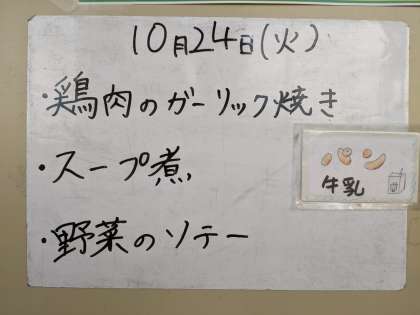 10月24日(火)
・鶏肉のガーリック焼き
・スープ煮
・野菜のソテー
パン
牛乳